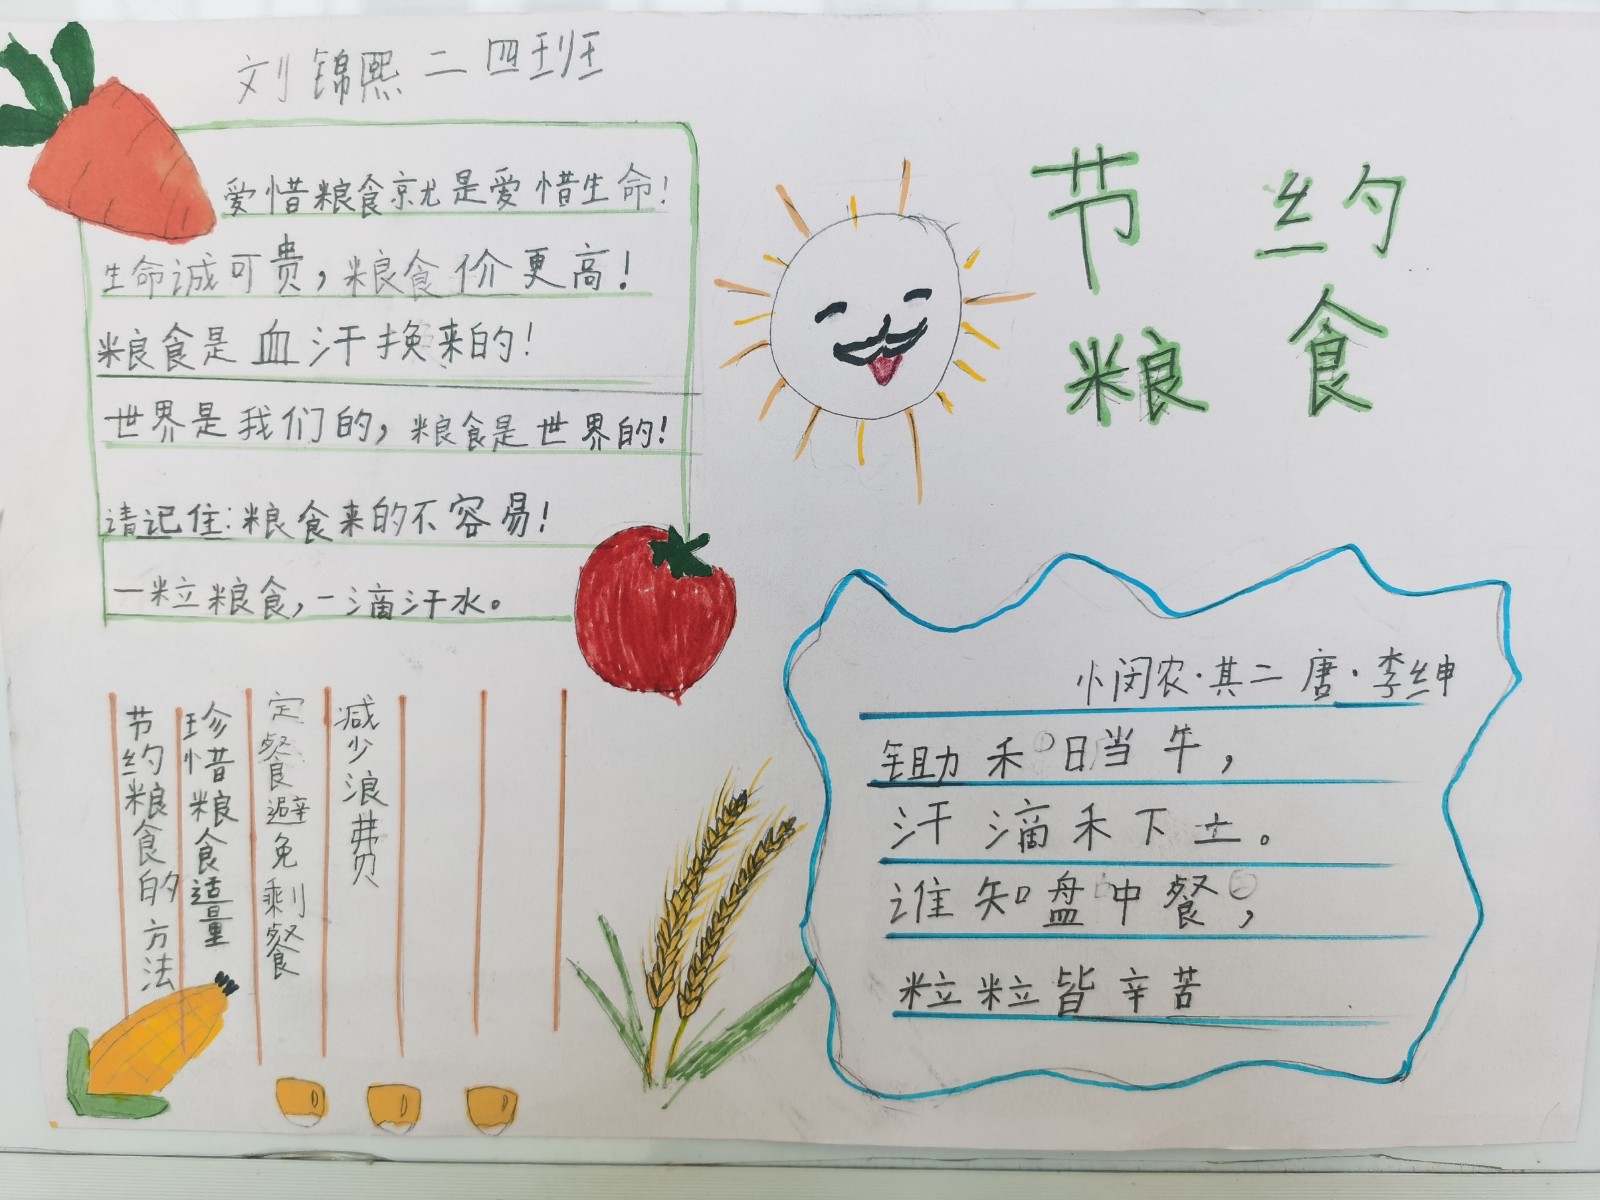 刘锦熙二四班
节约
粮食
爱惜粮食就是爱惜生命!
生命诚可贵,粮食价更高!
粮食是血汗换来的!
世界是我们的,粮食是世界的!
请记住:粮食来的不容易!
一粒粮食,一滴汗水。
节约粮食的方法
珍惜粮食适量
定餐避免剩餐
减少浪费
悯农·其二 唐·李绅
锄禾日当午,
汗滴禾下土。
谁知盘中餐,
粒粒皆辛苦